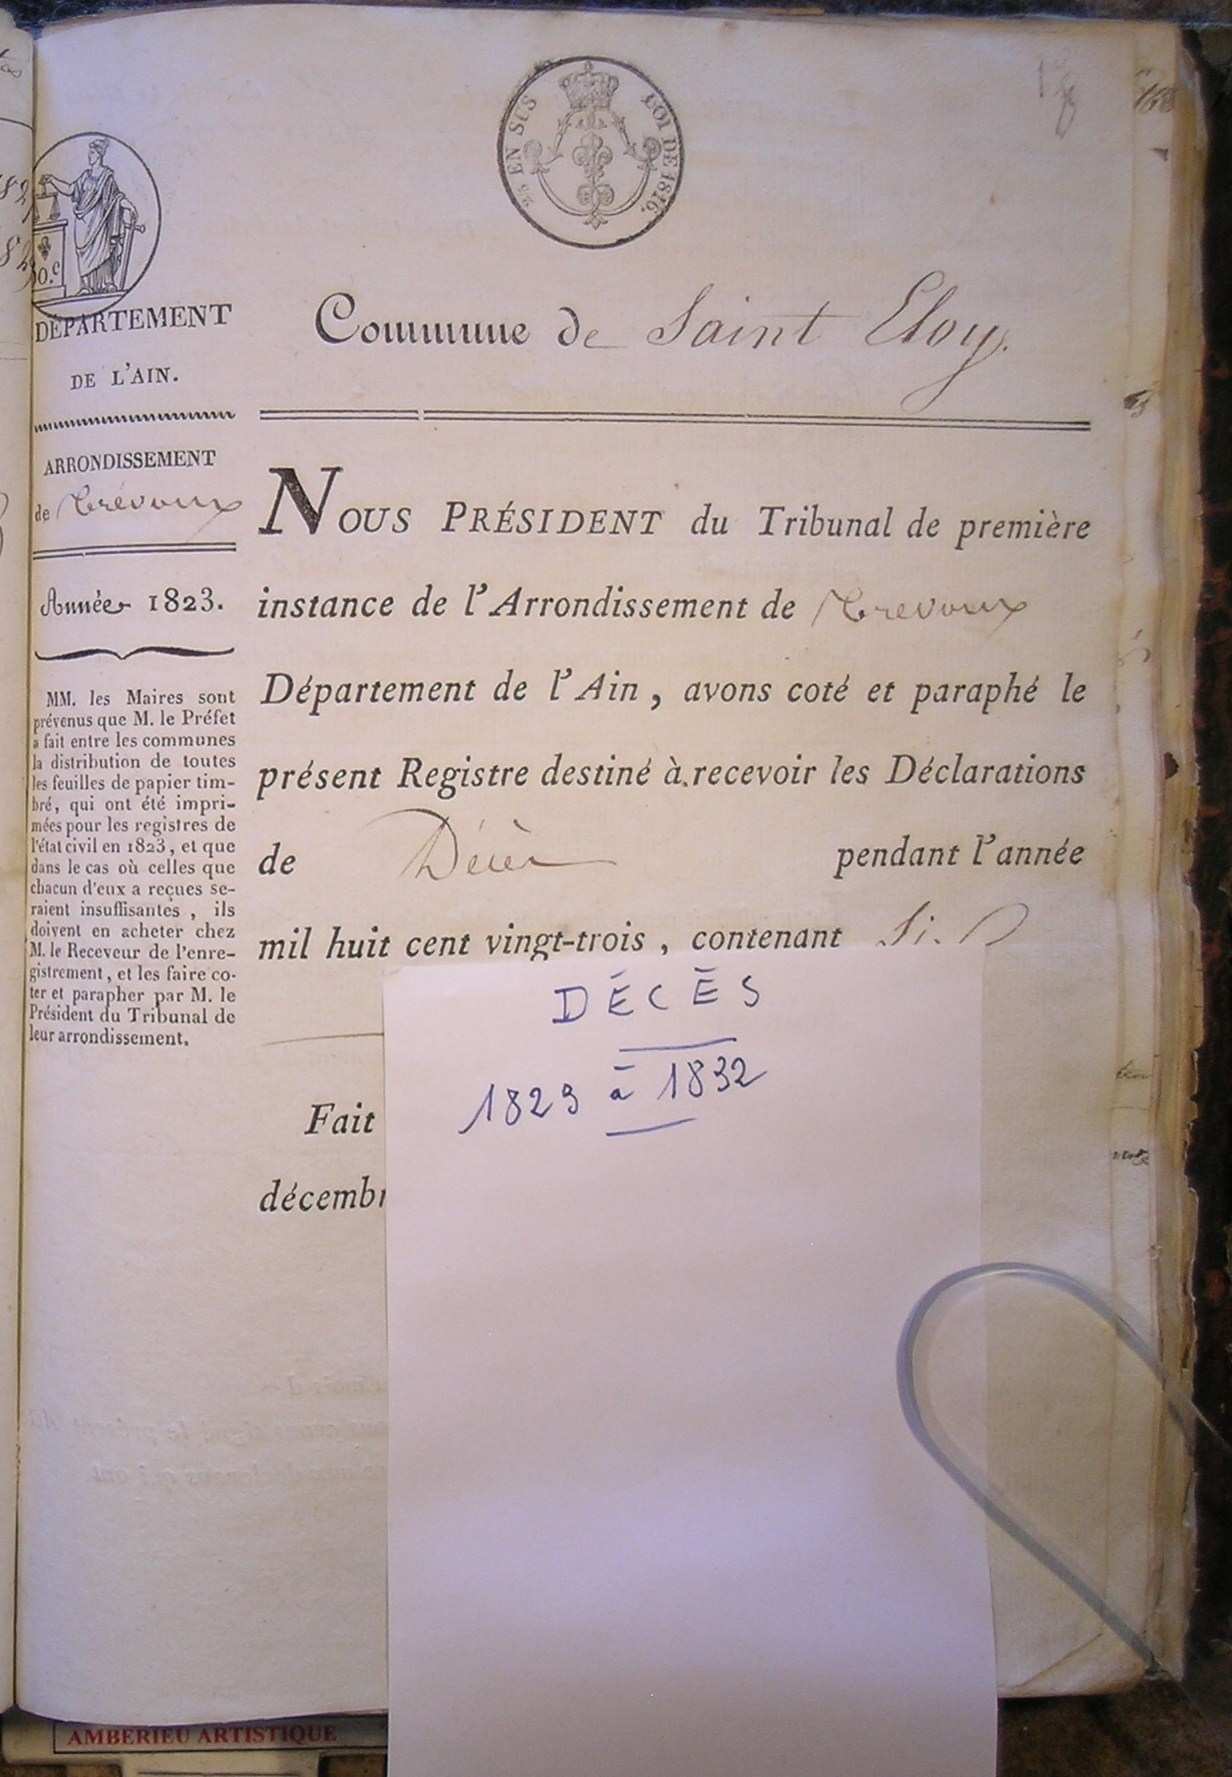 EN SUS
LOI DE 1816.
30.c
DÉPARTEMENT
DE L'AIN.
ARRONDISSEMENT
de Trévoux
Année 1823.
MM. les Maires sont
prévenus que M. le Préfet
a fait entre les communes
la distribution de toutes
les feuilles de papier tim-
bré, qui ont été impri-
mées pour les registres de
l'état civil en 1823, et que
dans le cas où celles que
chacun d'eux a reçues se-
raient insuffisantes, ils
doivent en acheter chez
M. le Receveur de l'enre-
gistrement, et les faire co-
ter et parapher par M. le
Président du Tribunal de
leur arrondissement.
Commune de Saint Eloy.
NOUS PRÉSIDENT du Tribunal de première
instance de l'Arrondissement de Trevoux
Département de l'Ain, avons coté et paraphé le
présent Registre destiné à recevoir les Déclarations
de Décès pendant l'année
mil huit cent vingt-trois, contenant
Fait
décembr
DÉCÈS
1823 à 1832
AMBERIEU ARTISTIQUE